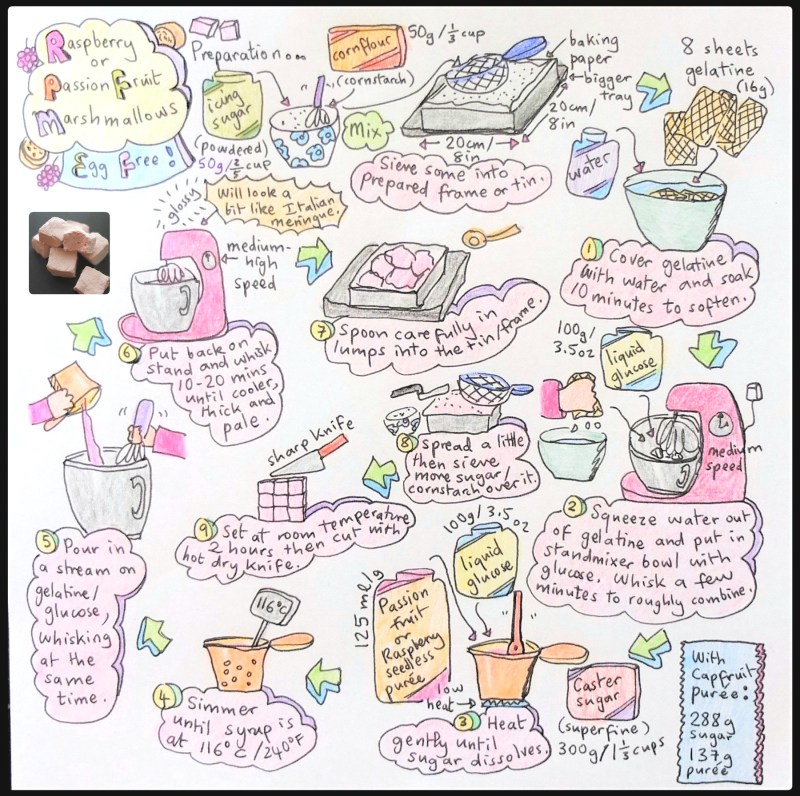 Raspberry
or
Passion Fruit
Marshmallows
Egg Free!
Preparation...
icing
sugar
(powdered)
50g/2/5 cup
cornflour
50g/1/3 cup
(cornstarch)
Mix
baking
paper
bigger
tray
20cm/
8in
20cm/
8in
Sieve some into
prepared frame or tin.
8 sheets
gelatine
(16g)
water
1 Cover gelatine
with water and soak
10 minutes to soften.
100g/
3.5oz
liquid
glucose
medium
speed
2 Squeeze water out
of gelatine and put in
standmixer bowl with
glucose. Whisk a few
minutes to roughly combine.
100g/3.5oz
liquid
glucose
125ml/g
Passion
fruit
or
Raspberry
seedless
purée
low
heat
Caster
sugar
(superfine)
300g/1 1/3 cups
3 Heat
gently until
sugar dissolves.
With
Capfruit
purée:
288g
sugar
137g
purée
116°C
4 Simmer
until syrup is
at 116°C/240°F
5 Pour in
a stream on
gelatine/
glucose,
whisking
at the
same
time.
glossy
Will look a
bit like Italian
meringue.
medium-
high
speed
6 Put back on
stand and whisk
10-20 mins
until cooler,
thick and
pale.
7 Spoon carefully in
lumps into the tin/frame.
8 Spread a little
then sieve
more sugar/
cornstarch over it.
sharp knife
9 Set at room temperature
2 hours then cut with
hot dry knife.